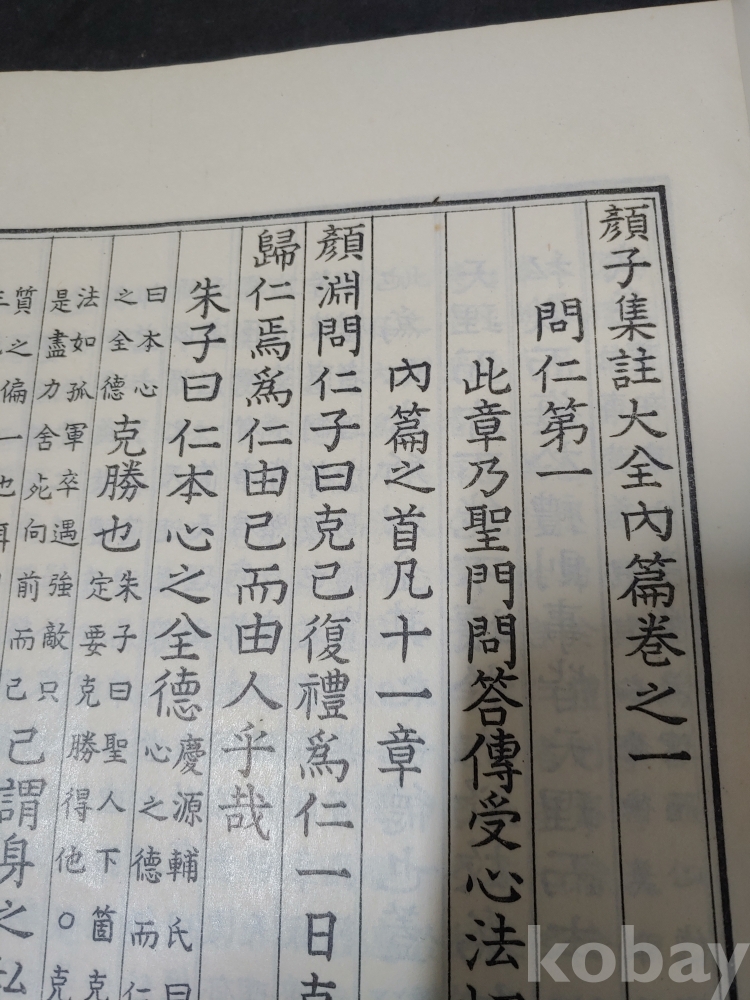 顔子集註大全內篇卷之一
問仁第一
此章乃聖門問答傳受心法切
內篇之首凡十一章
顔淵問仁子曰克己復禮爲仁一日克
歸仁焉爲仁由己而由人乎哉
朱子曰仁本心之全德慶源輔氏曰
心之德而仁
曰本心
之全德
克勝也
朱子曰聖人下箇克
定要克勝得他○克
法如孤軍卒遇強敵只
是盡力舍死向前而已
己謂身之私
質之偏一也
kobay